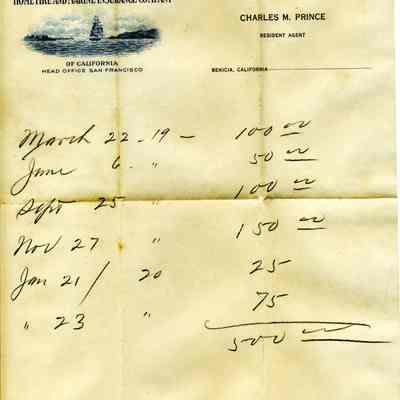 HOME FIRE AND MARINE INSURANCE COMPANY
OF CALIFORNIA
HEAD OFFICE SAN FRANCISCO
CHARLES M. PRINCE
RESIDENT AGENT
BENICIA, CALIFORNIA
March 22 - 19 - 100 00
June 6 - " 50 00
Sept 25 " 100 00
Nov 27 " 150 00
Jan 21 / 20 25
" 23 " 75
500 00